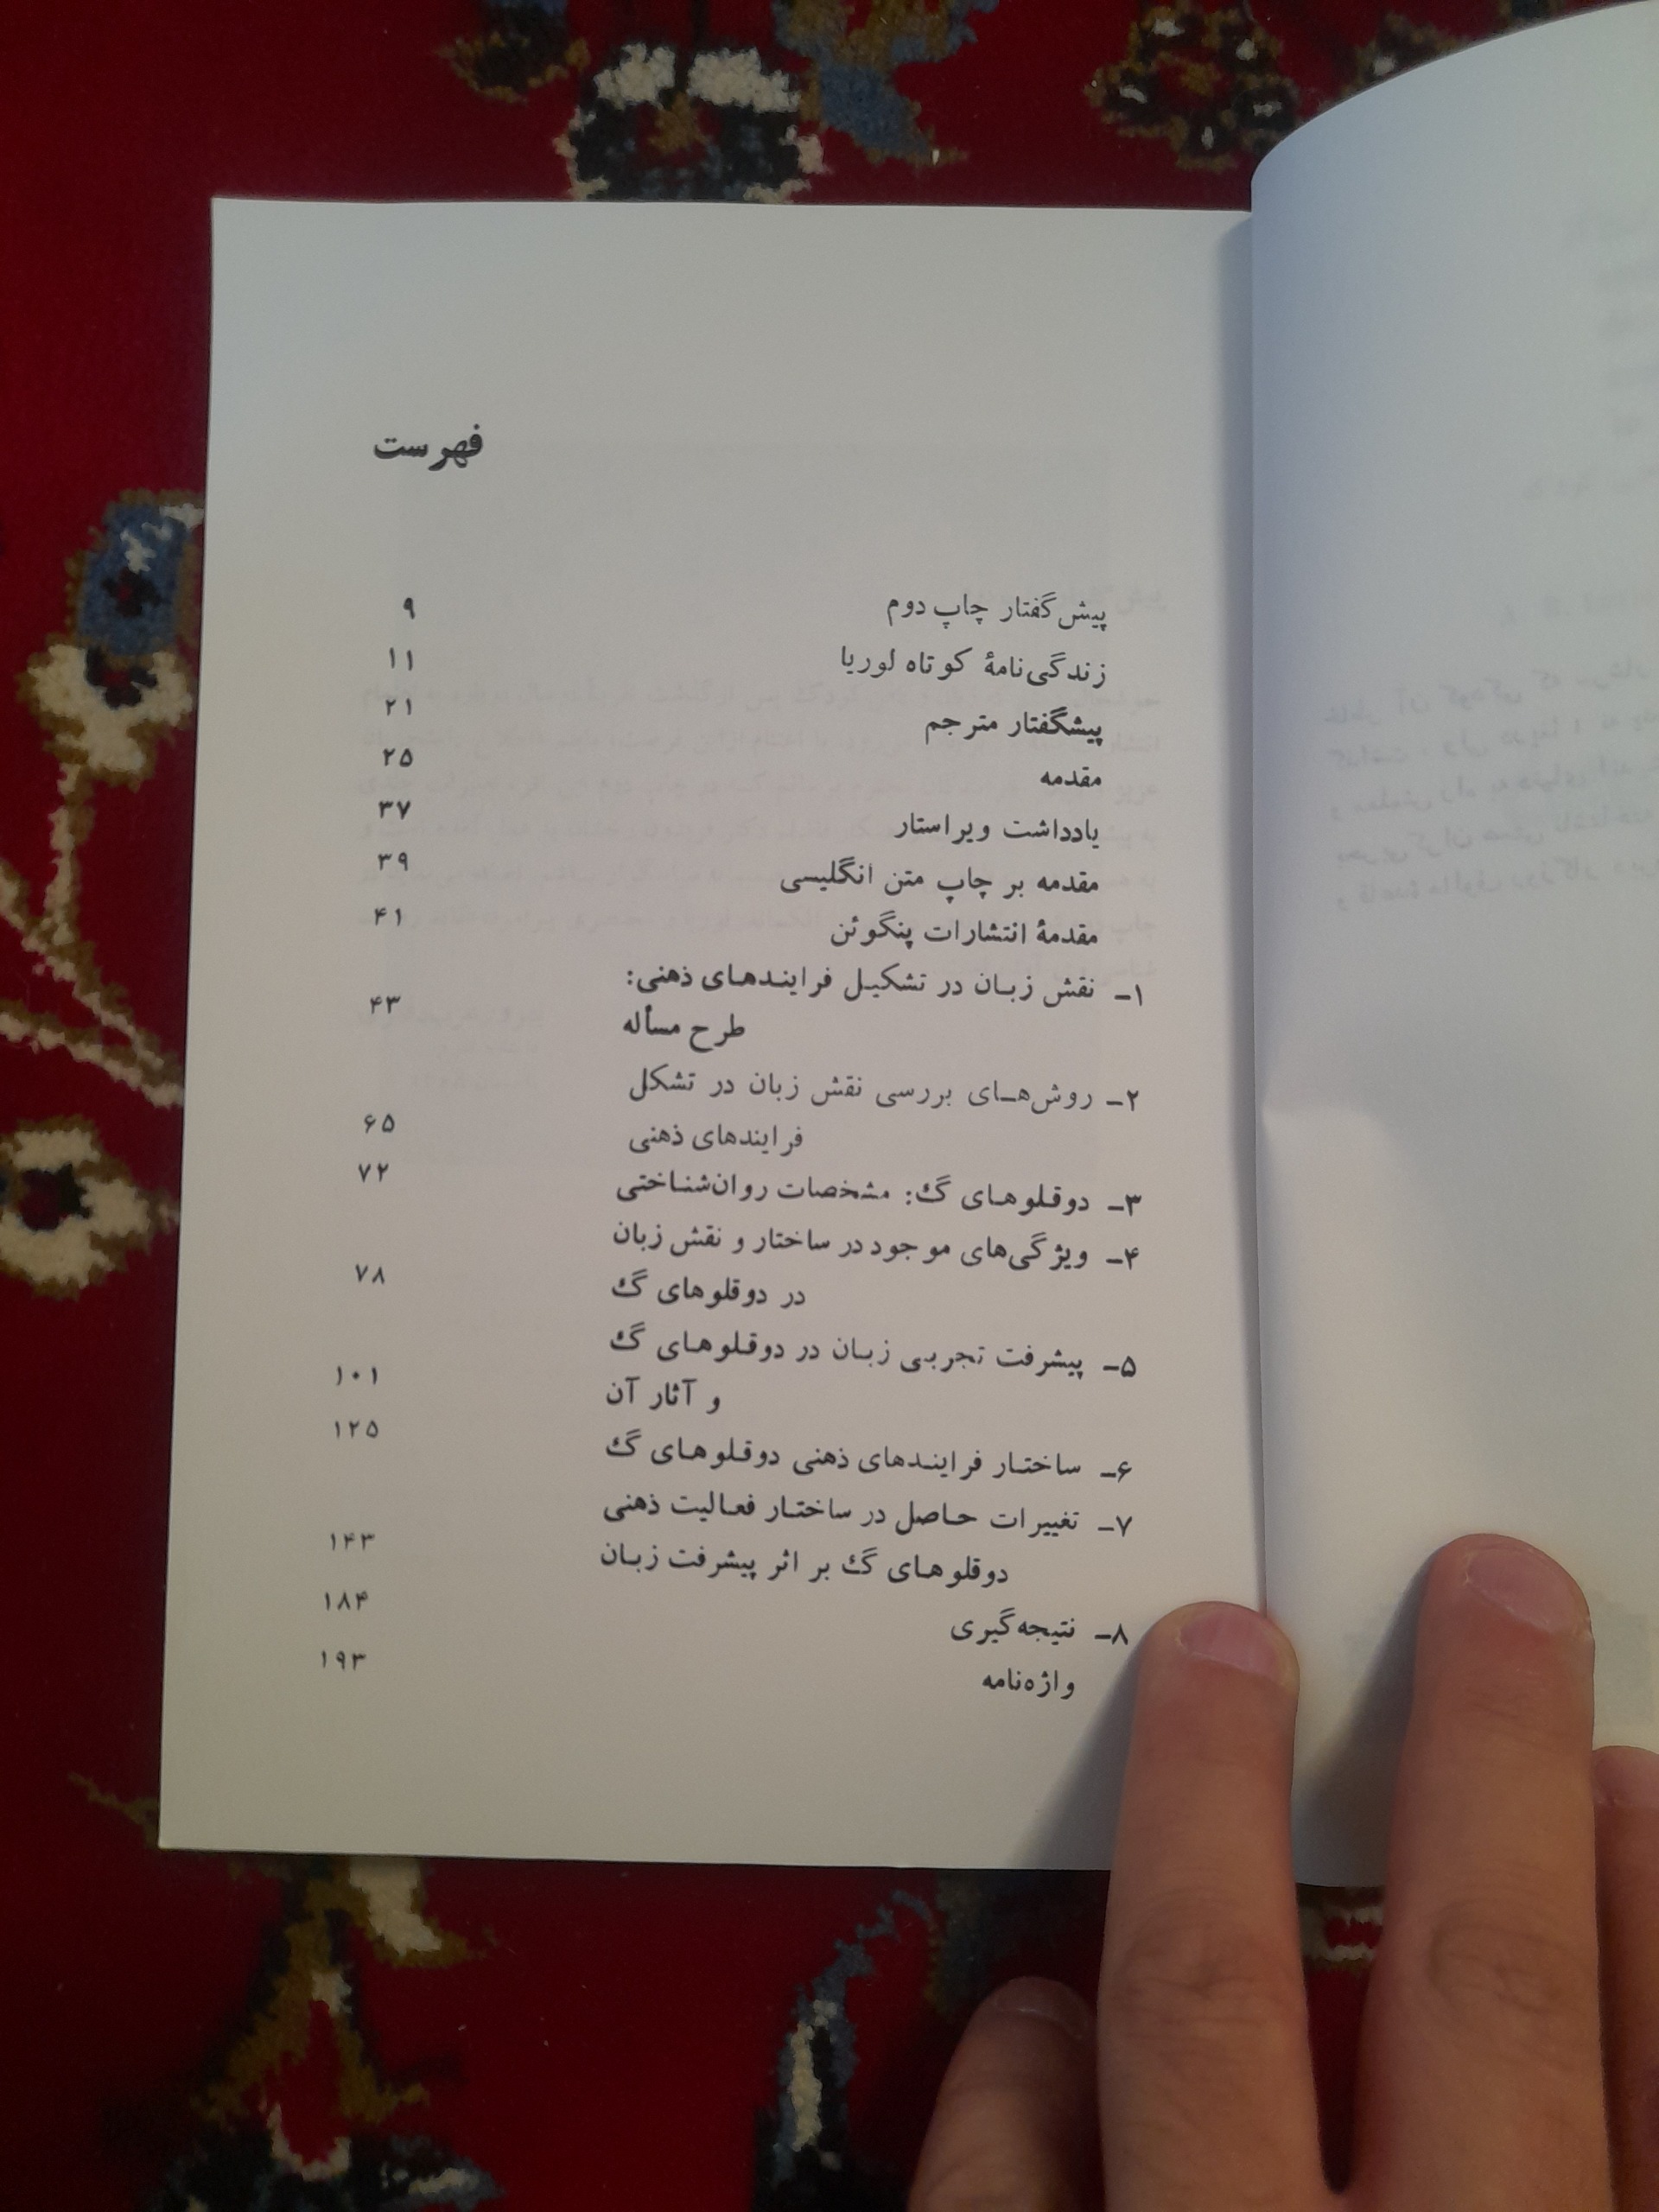 فهرست
پیش‌گفتار چاپ دوم ۹
زندگی‌نامهٔ کوتاه لوریا ۱۱
پیشگفتار مترجم ۲۱
مقدمه ۲۵
یادداشت ویراستار ۳۷
مقدمه بر چاپ متن انگلیسی ۳۹
مقدمهٔ انتشارات پنگوئن ۴۱
۱- نقش زبان در تشکیل فرایندهای ذهنی:
طرح مسأله ۴۳
۲- روش‌های بررسی نقش زبان در تشکل
فرایندهای ذهنی ۶۵
۳- دوقلوهای گ: مشخصات روان‌شناختی ۷۲
۴- ویژگی‌های موجود در ساختار و نقش زبان
در دوقلوهای گ ۷۸
۵- پیشرفت تجربی زبان در دوقلوهای گ
و آثار آن ۱۰۱
۶- ساختار فرایندهای ذهنی دوقلوهای گ ۱۲۵
۷- تغییرات حاصل در ساختار فعالیت ذهنی
دوقلوهای گ بر اثر پیشرفت زبان ۱۴۳
۸- نتیجه‌گیری ۱۸۴
واژه‌نامه ۱۹۳